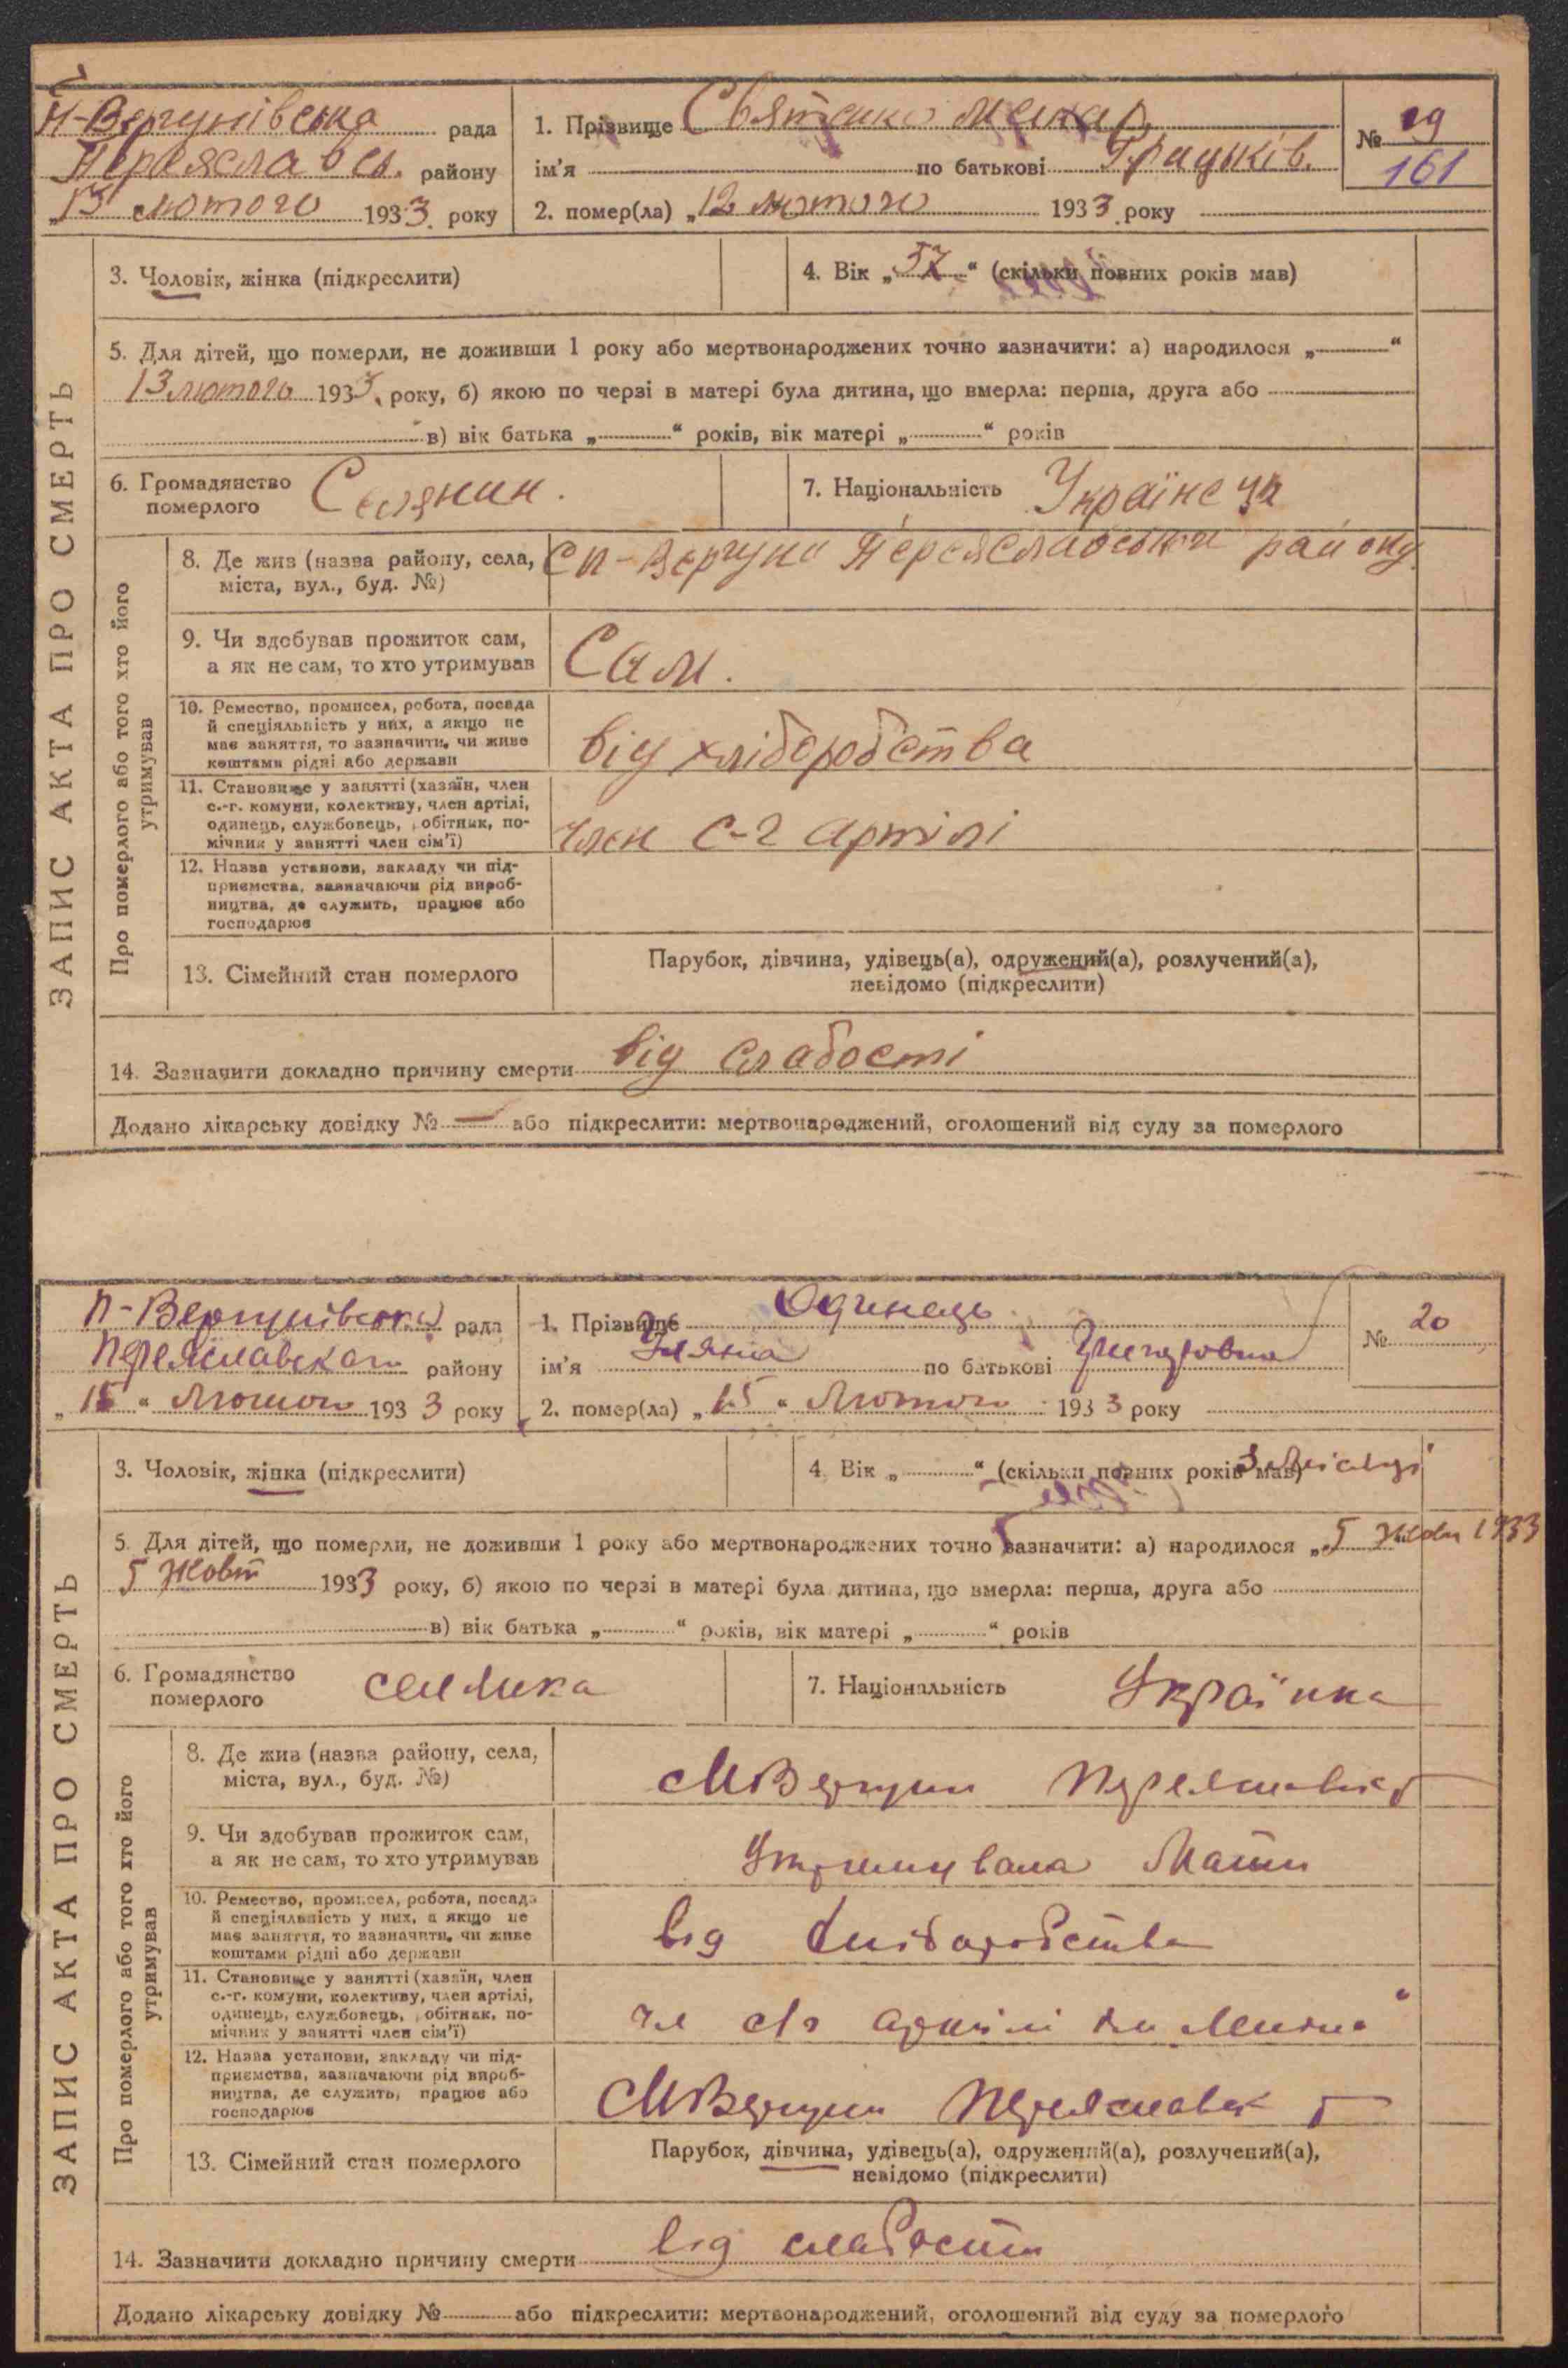 П-Вергунівська рада
Переяславсь. району
„13" лютого 1933 року
1. Прізвище Святенко Макар
ім'я по батькові Грицьків.
№ 19
161
2. помер(ла) „12 лютого 1933 року
ЗАПИС АКТА ПРО СМЕРТЬ
3. Чоловік, жінка (підкреслити)
4. Вік „57" (скільки повних років мав)
5. Для дітей, що померли, не доживши 1 року або мертвонароджених точно зазначити: а) народилося „ "
13 лютого 1933 року, б) якою по черзі в матері була дитина, що вмерла: перша, друга або
в) вік батька „ " років, вік матері „ " років
6. Громадянство
померлого
Селянин.
7. Національність Українець
Про померлого або того хто його
утримував
8. Де жив (назва району, села,
міста, вул., буд. №)
С П-Вергуни Переяславськи району
9. Чи здобував прожиток сам,
а як не сам, то хто утримував
Сам.
10. Ремество, промисел, робота, посада
й спеціяльність у них, а якщо не
має заняття, то зазначити, чи живе
коштами рідні або держави
від хліборобства
11. Становище у занятті (хазяїн, член
с.-г. комуни, колективу, член артілі,
одинець, службовець, робітник, по-
мічник у занятті член сім'ї)
член С-г артілі
12. Назва установи, закладу чи під-
приємства, зазначаючи рід вироб-
ництва, де служить, працює або
господарює
13. Сімейний стан померлого
Парубок, дівчина, удівець(а), одружений(а), розлучений(а),
невідомо (підкреслити)
14. Зазначити докладно причину смерти від слабості
Додано лікарську довідку № — або підкреслити: мертвонароджений, оголошений від суду за померлого
П-Вергунівська рада
Переяславского району
„15" Лютого 1933 року
1. Прізвище Одинець
ім'я Уляна по батькові Григоровна
№ 20
2. помер(ла) „15" Лютого 1933 року
ЗАПИС АКТА ПРО СМЕРТЬ
3. Чоловік, жінка (підкреслити)
4. Вік „ " (скільки повних років мав) 3 місяці
5. Для дітей, що померли, не доживши 1 року або мертвонароджених точно зазначити: а) народилося „5 Жовт 1933
5 Жовт 1933 року, б) якою по черзі в матері була дитина, що вмерла: перша, друга або
в) вік батька „ " років, вік матері „ " років
6. Громадянство
померлого
селянка
7. Національність Українка
Про померлого або того хто його
утримував
8. Де жив (назва району, села,
міста, вул., буд. №)
Вергуни Переяславск
9. Чи здобував прожиток сам,
а як не сам, то хто утримував
Утримувала Мати
10. Ремество, промисел, робота, посада
й спеціяльність у них, а якщо не
має заняття, то зазначити, чи живе
коштами рідні або держави
від хліборобства
11. Становище у занятті (хазяїн, член
с.-г. комуни, колективу, член артілі,
одинець, службовець, робітник, по-
мічник у занятті член сім'ї)
чл с/г артілі
12. Назва установи, закладу чи під-
приємства, зазначаючи рід вироб-
ництва, де служить, працює або
господарює
Вергуни Переяславск
13. Сімейний стан померлого
Парубок, дівчина, удівець(а), одружений(а), розлучений(а),
невідомо (підкреслити)
14. Зазначити докладно причину смерти від слабости
Додано лікарську довідку № або підкреслити: мертвонароджений, оголошений від суду за померлого